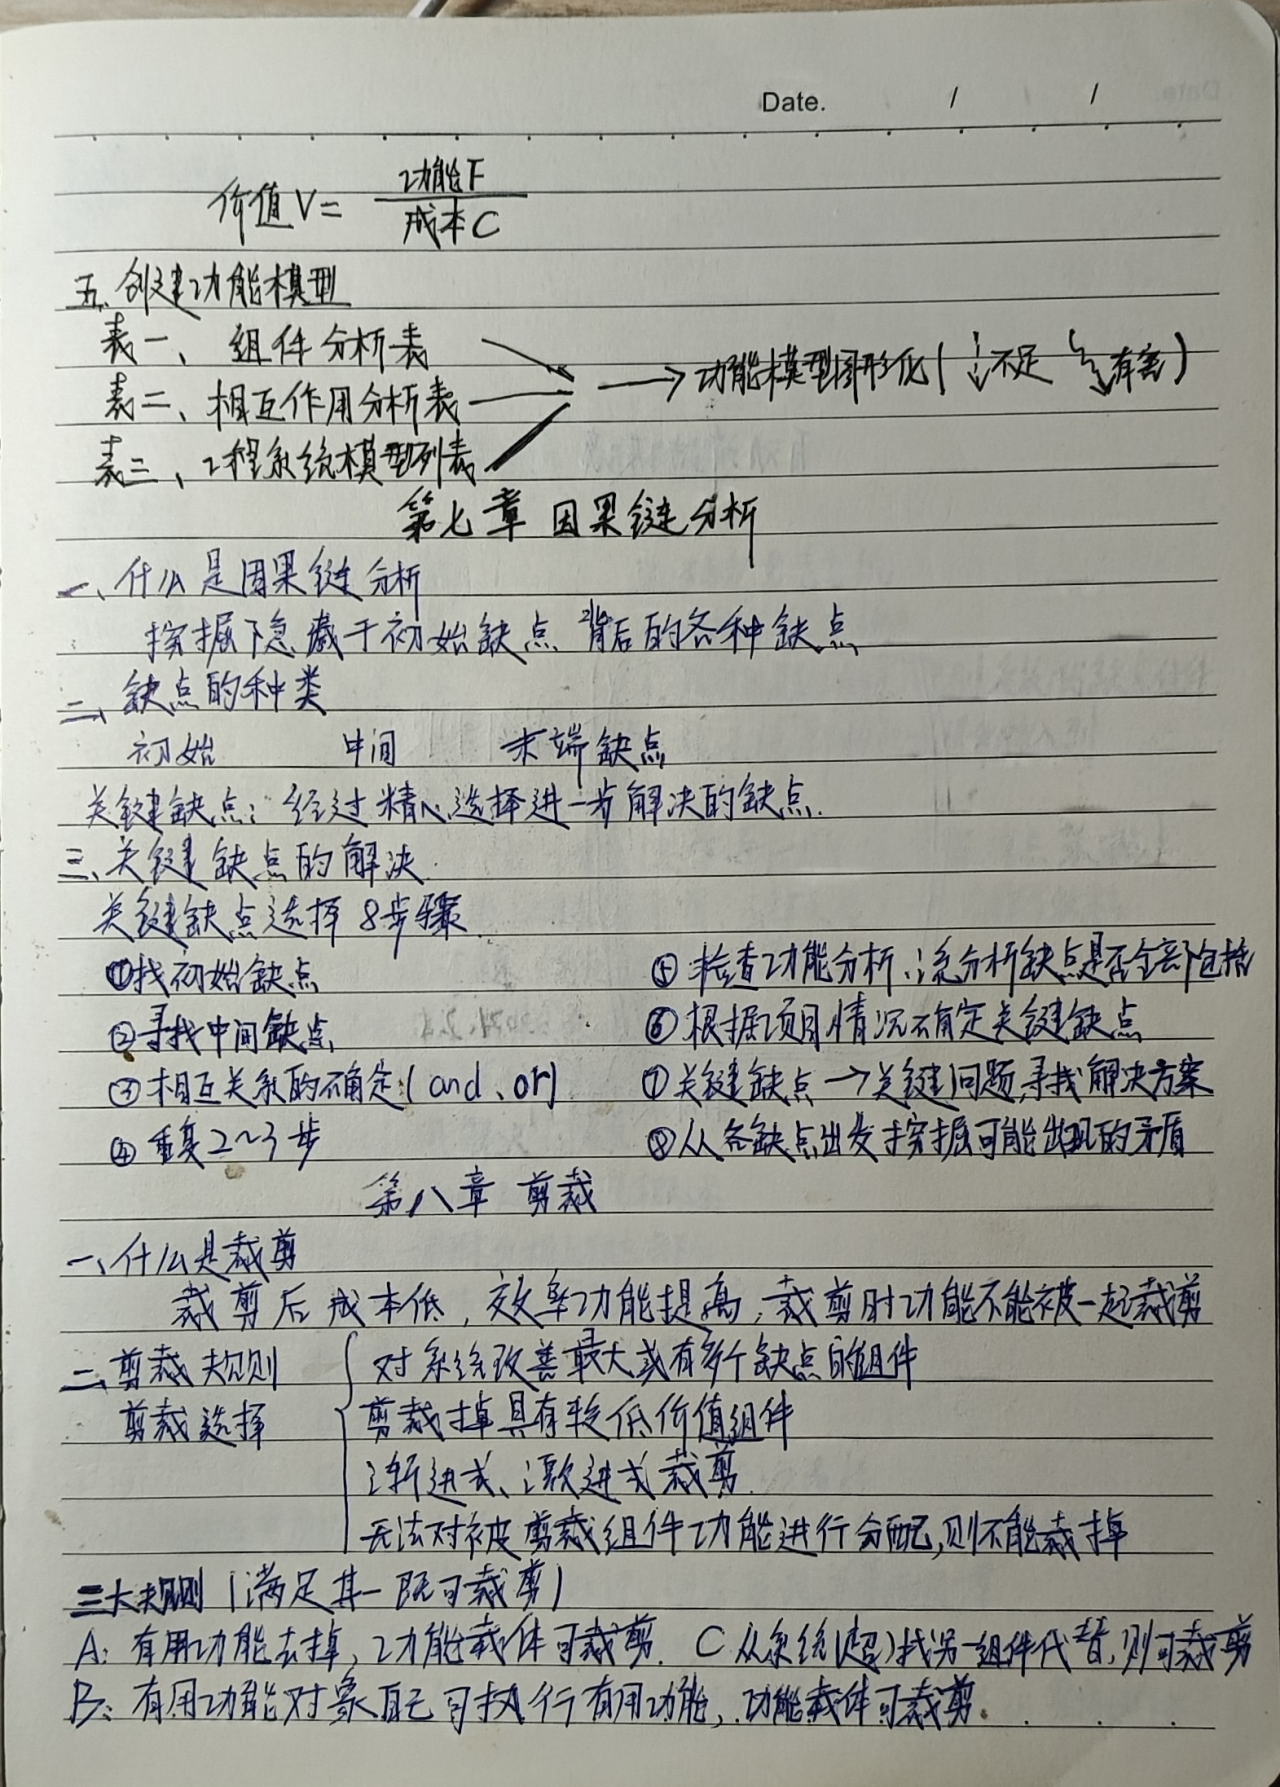 Date. / /
价值V= 功能F
成本C
五、创建功能模型
表一、组件分析表
表二、相互作用分析表 → 功能模型图形化(不足 有害)
表三、工程系统模型列表
第七章 因果链分析
一、什么是因果链分析
挖掘隐藏于初始缺点背后的各种缺点
二、缺点的种类
初始 中间 末端缺点
关键缺点：经过精心选择进一步解决的缺点.
三、关键缺点的解决.
关键缺点选择8步骤.
①找初始缺点
②寻找中间缺点
③相互关系的确定(and、or)
④重复2~3步
⑤检查功能分析、流分析缺点是否全部包括
⑥根据项目情况确定关键缺点
⑦关键缺点→关键问题,寻找解决方案
⑧从各缺点出发挖掘可能出现的矛盾
第八章 剪裁
一、什么是裁剪
裁剪后成本低,效率功能提高,裁剪时功能不能被一起裁剪
二、剪裁规则 对系统改善最大或有多个缺点的组件
剪裁选择 剪裁掉具有较低价值组件
渐进式、激进式裁剪.
无法对被剪裁组件功能进行分配,则不能裁掉
三大规则(满足其一既可裁剪)
A：有用功能去掉,功能载体可裁剪. C 从系统(超)找另一组件代替,则可裁剪
B：有用功能对象自己可执行有用功能,功能载体可裁剪.